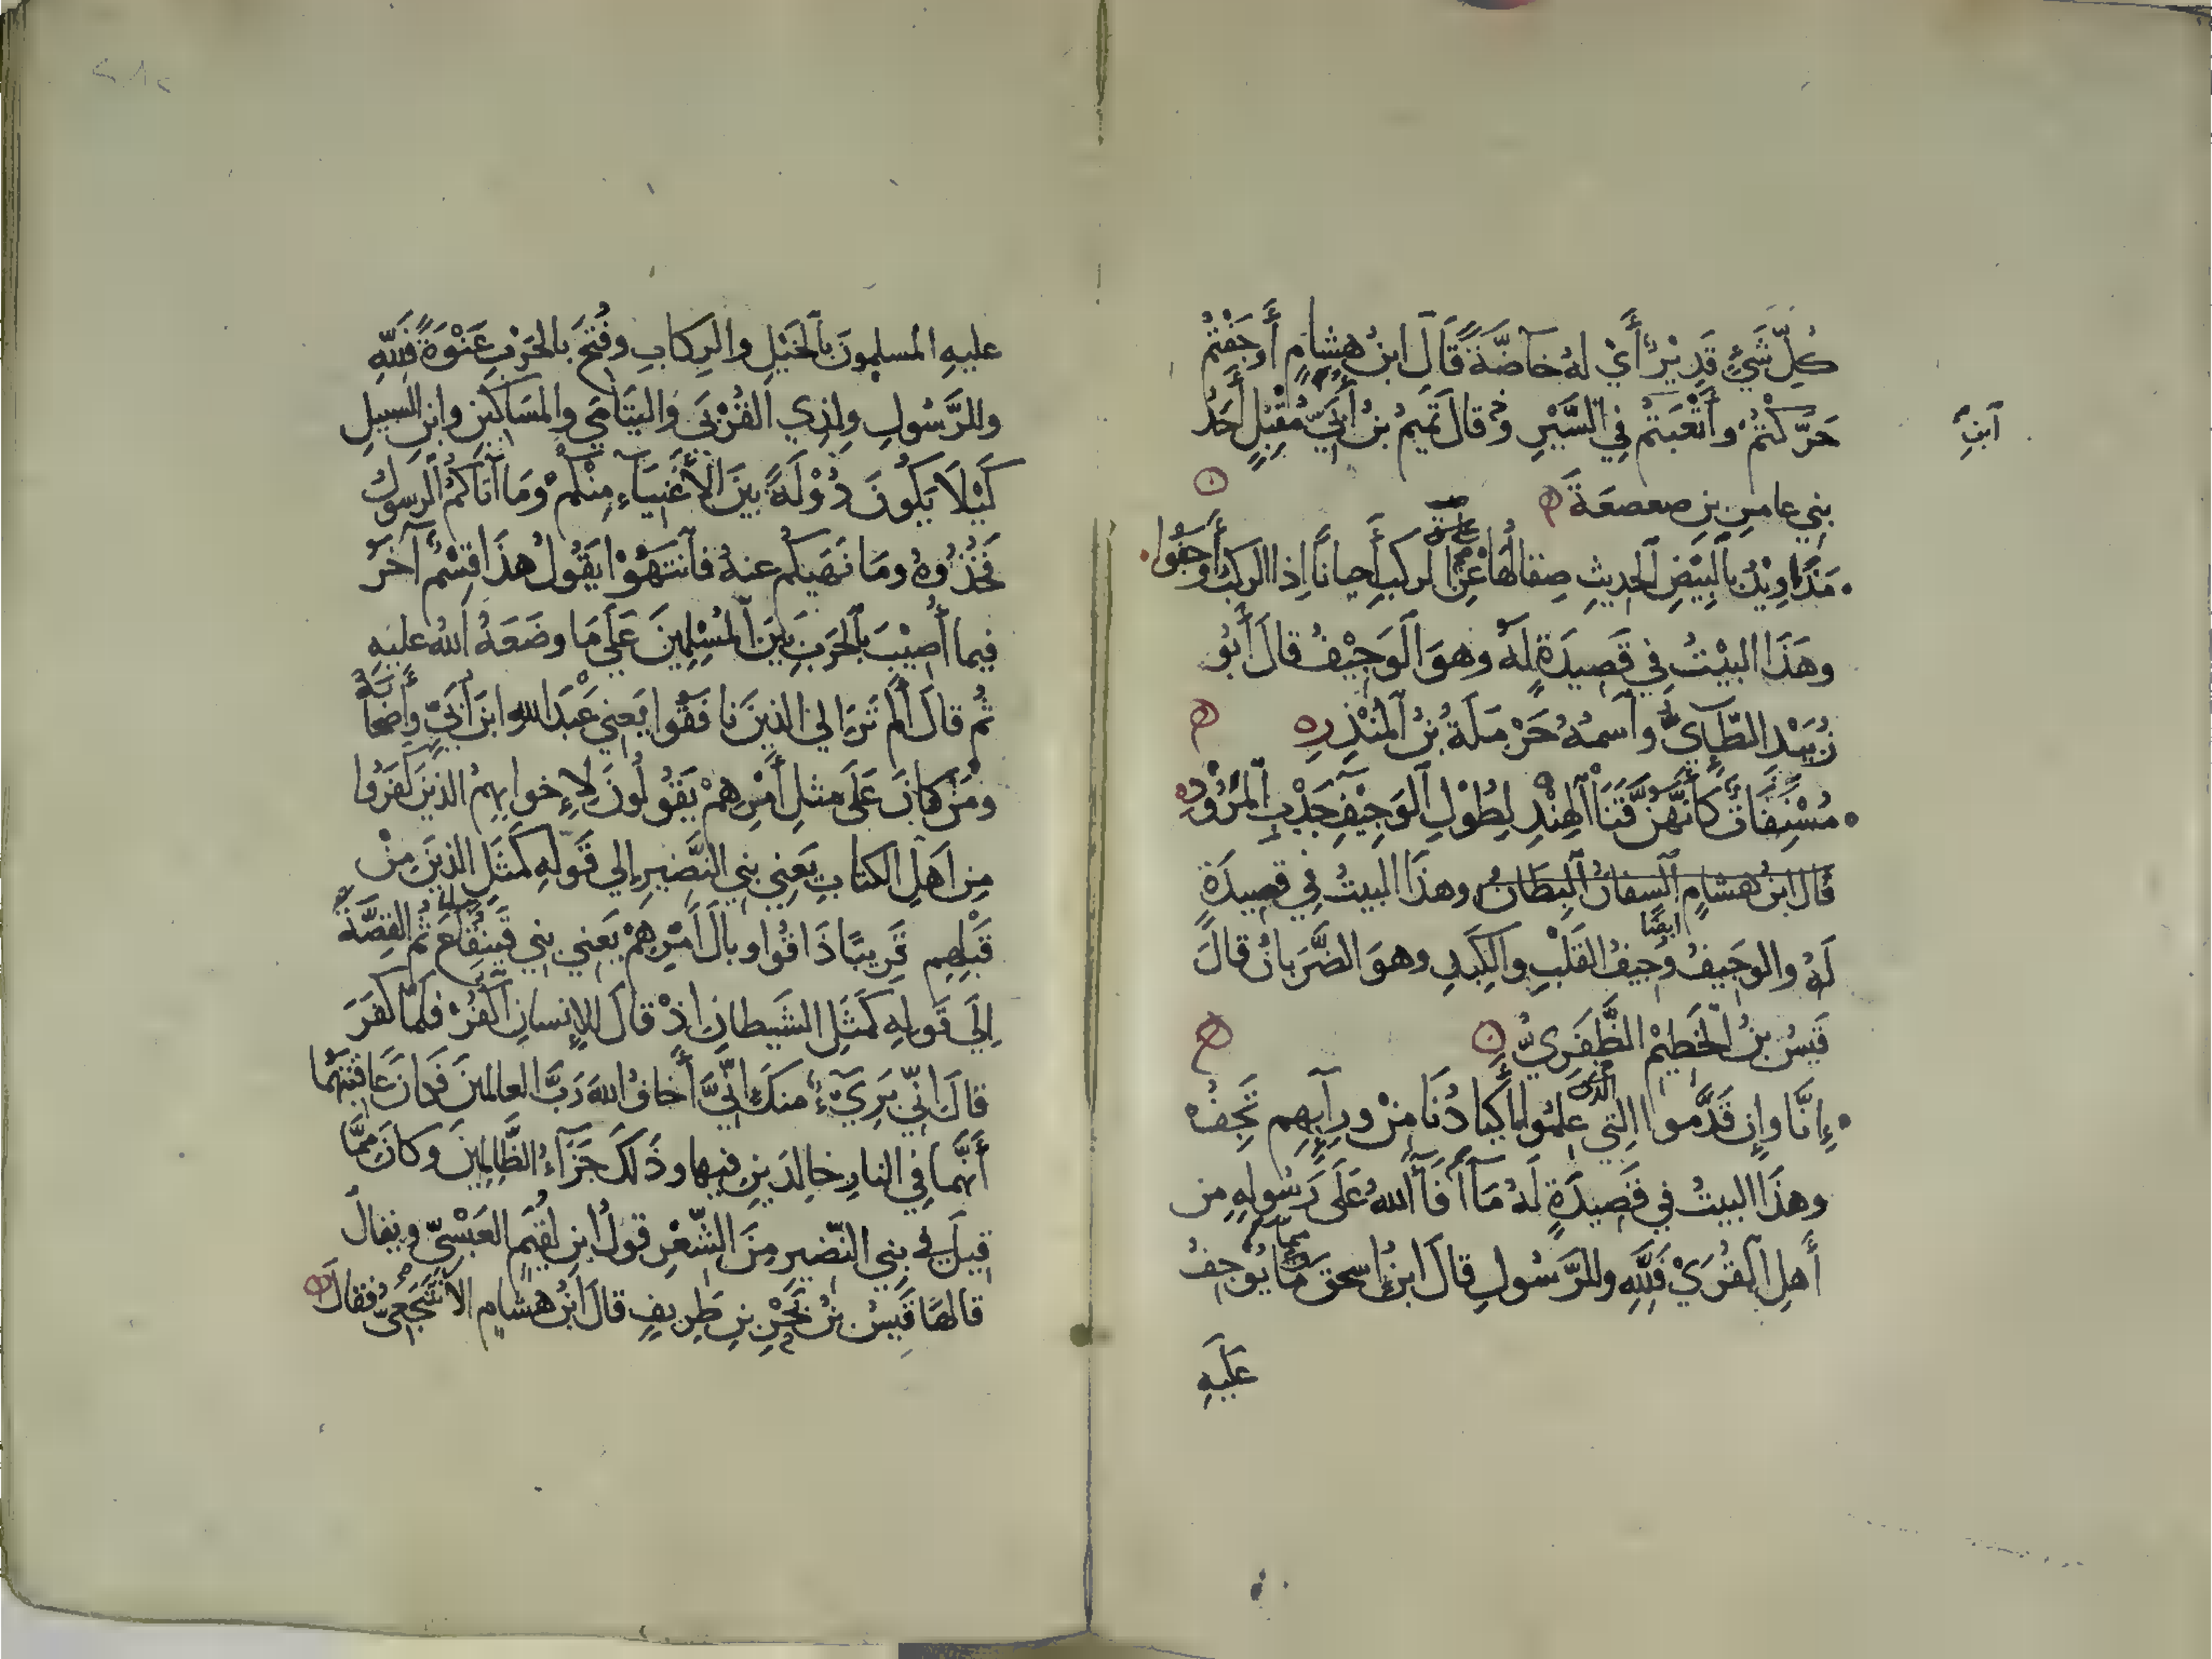 كُلِّ شَيْءٍ قَدِيْرٌ أَيْ لهُ خآصَّةً قَالَ ابنُ هِشامٍ أَوجَفْتُمْ
حَرَّكْتُمْ وأَتْعَبتُمْ فِي السَّيْرِ وقالَ تَمِيمُ بنُ أُبَيِّ مُقْبِلٍ أَحَدُ
آبنِ
بنِي عامرِ بنِ صعصعَةَ
مَذَاوِيْدُ بالبِيْضِ الحديثِ صِقالُهَا عَنِ الركبِ أحيانًا إذا الركبُ أَوجَفُوا
وهَذَا البيْتُ فِي قَصِيدَةٍ لَهُ وهوَ الوَجِيْفُ قالَ أَبُو
زُبَيْد الطَّآئِيُّ وآسمهُ حَرْمَلَةُ بنُ المُنْذِرِ
مُسْنِفَاتٌ كَأَنَّهُنَّ قَنَا الهِنْدِ لِطُوْلِ الوَجِيْفِ جَدْبِ المَرُوْدِ
قَالَ ابنُ هشامٍ السِنافُ البِطَانُ وهذَا البيتُ فِي قصِيدَةٍ
لَهُ والوجيفُ أيضًا وجيفُ القَلْبِ والكِبَدِ وهوَ الضَّرَبانُ قالَ
قَيسُ بنُ الخَطِيْمِ الظَّفَرِيُّ
إِنَّا وإن قَدَّموا التِي عَلِمُوا أَكبَادُنَا مِنْ ورآئِهِم تَجِفُ
وهذَا البيتُ فِي قَصِيدَةٍ لَهُ مَآ أَفَآءَ اللهُ عَلَى رَسُولِهِ مِن
أَهلِ القُرَىْ فَلِلَّهِ وللرَّسُولِ قالَ ابنُ إسحقَ مَا يُوجِفُ
عَلَيهِ
عليهِ المسلِمونَ بالخَيْلِ والرِكابِ وفُتِحَ بالحَرْبِ عَنْوَةً فَلِلَّهِ
وللرَّسُولِ ولِذِي القُرْبَى واليَتَامَى والمَسَاكِينِ وابنِ السبيلِ
كَيْلَا يَكُونَ دُوْلَةً بَيْنَ الأَغْنِيَآءِ مِنْكُمْ وَمَا آتَاكُمُ الرسولُ
فَخُذُوهُ ومَا نَهَيكُم عنهُ فآنتَهُوْا يَقُولُ هذَا قِسْمٌ آخَرُ
فِيما أُصِيْبَ بالحَربِ بَينَ المُسْلِمِينَ عَلَى مَا وضَعَهُ اللهُ عليهِ
ثُم قالَ أَلَم تَرَ إلي الذينَ نافَقُوا يَعنِي عَبْدَ اللهِ ابنَ أُبَيٍّ وأَصحَابَهُ
ومَنْ كانَ عَلَى مثلِ أَمْرِهِمْ يَقُولُونَ لِإِخوانِهِمُ الذينَ كَفَرُوا
مِن أهلِ الكتابِ يَعنِي بنِي النَّضِيرِ إلي قَولِهِ كَمَثَلِ الذينَ مِنْ
قَبْلِهِم قَرِيبًا ذَاقُوا وبالَ أَمْرِهِمْ يَعنِي بنِي قَينُقَاعَ ثُم القِصَّةُ
إلَي قَولِهِ كَمَثَلِ الشَيطانِ إِذْ قالَ لِلإنسانِ اكْفُرْ فلمّا كَفَرَ
قالَ إنِّي بَرِيْءٌ منكَ إنِّيَ أَخافُ اللهَ رَبَّ العالمينَ فَكانَ عَاقبتَهُما
أَنَّهُما فِي النارِ خالِدَينِ فيها وذَلكَ جَزَآءُ الظَّالِمِينَ وكانَ مِمَّا
قِيلَ فِي بنِي النَّضير مِنَ الشِّعْرِ قولُ ابنِ لُقَيْمٍ العَبْسِيِّ ويقالُ
قالهَا قَيسُ بنُ بَحْرِ بنِ طَرِيفٍ قالَ ابنُ هشامٍ الأَشْجَعِيُّ فقالَ